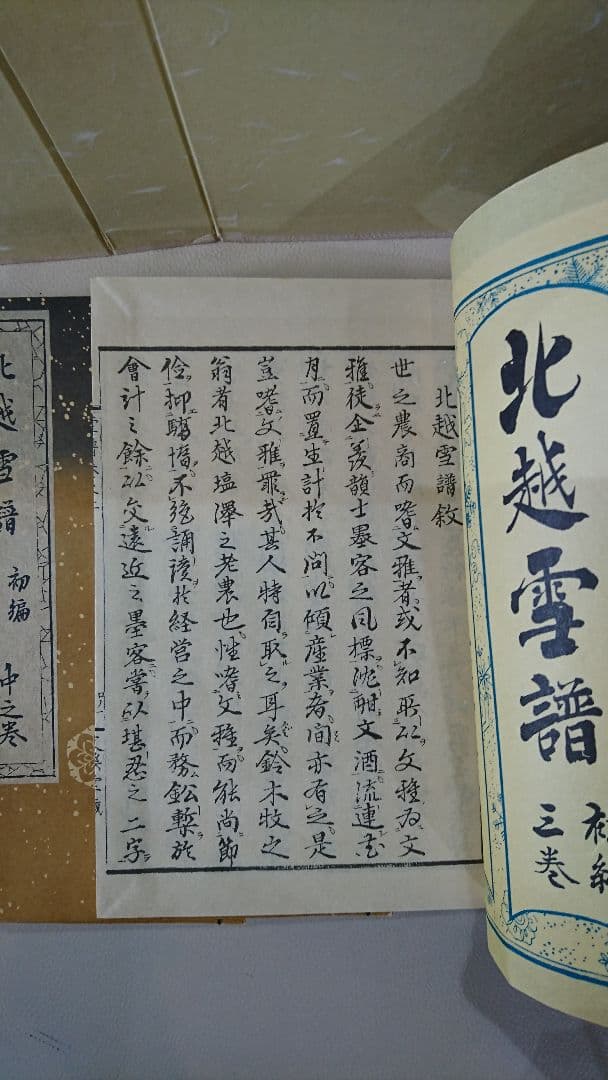 北越雪譜
初編
三巻
北越雪譜敘
世之農商而嗜文雅者或不知所以文雅為文
雅徒企羨韻士墨客之風標沈酣文酒流連花
月而置生計於不問以傾産業者間亦有之是
豈嗜文雅罪哉其人特自取之耳矣鈴木牧之
翁者北越塩澤之老農也性嗜文雅而能尚節
儉抑驕惰不絶誦讀於経営之中而務鉛槧於
會計之餘以交遠近之墨客嘗以堪忍之二字
北越雪譜
初編
中之巻